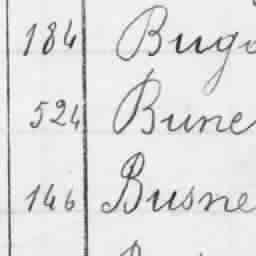 184 Bugo
524 Bune
146 Busne